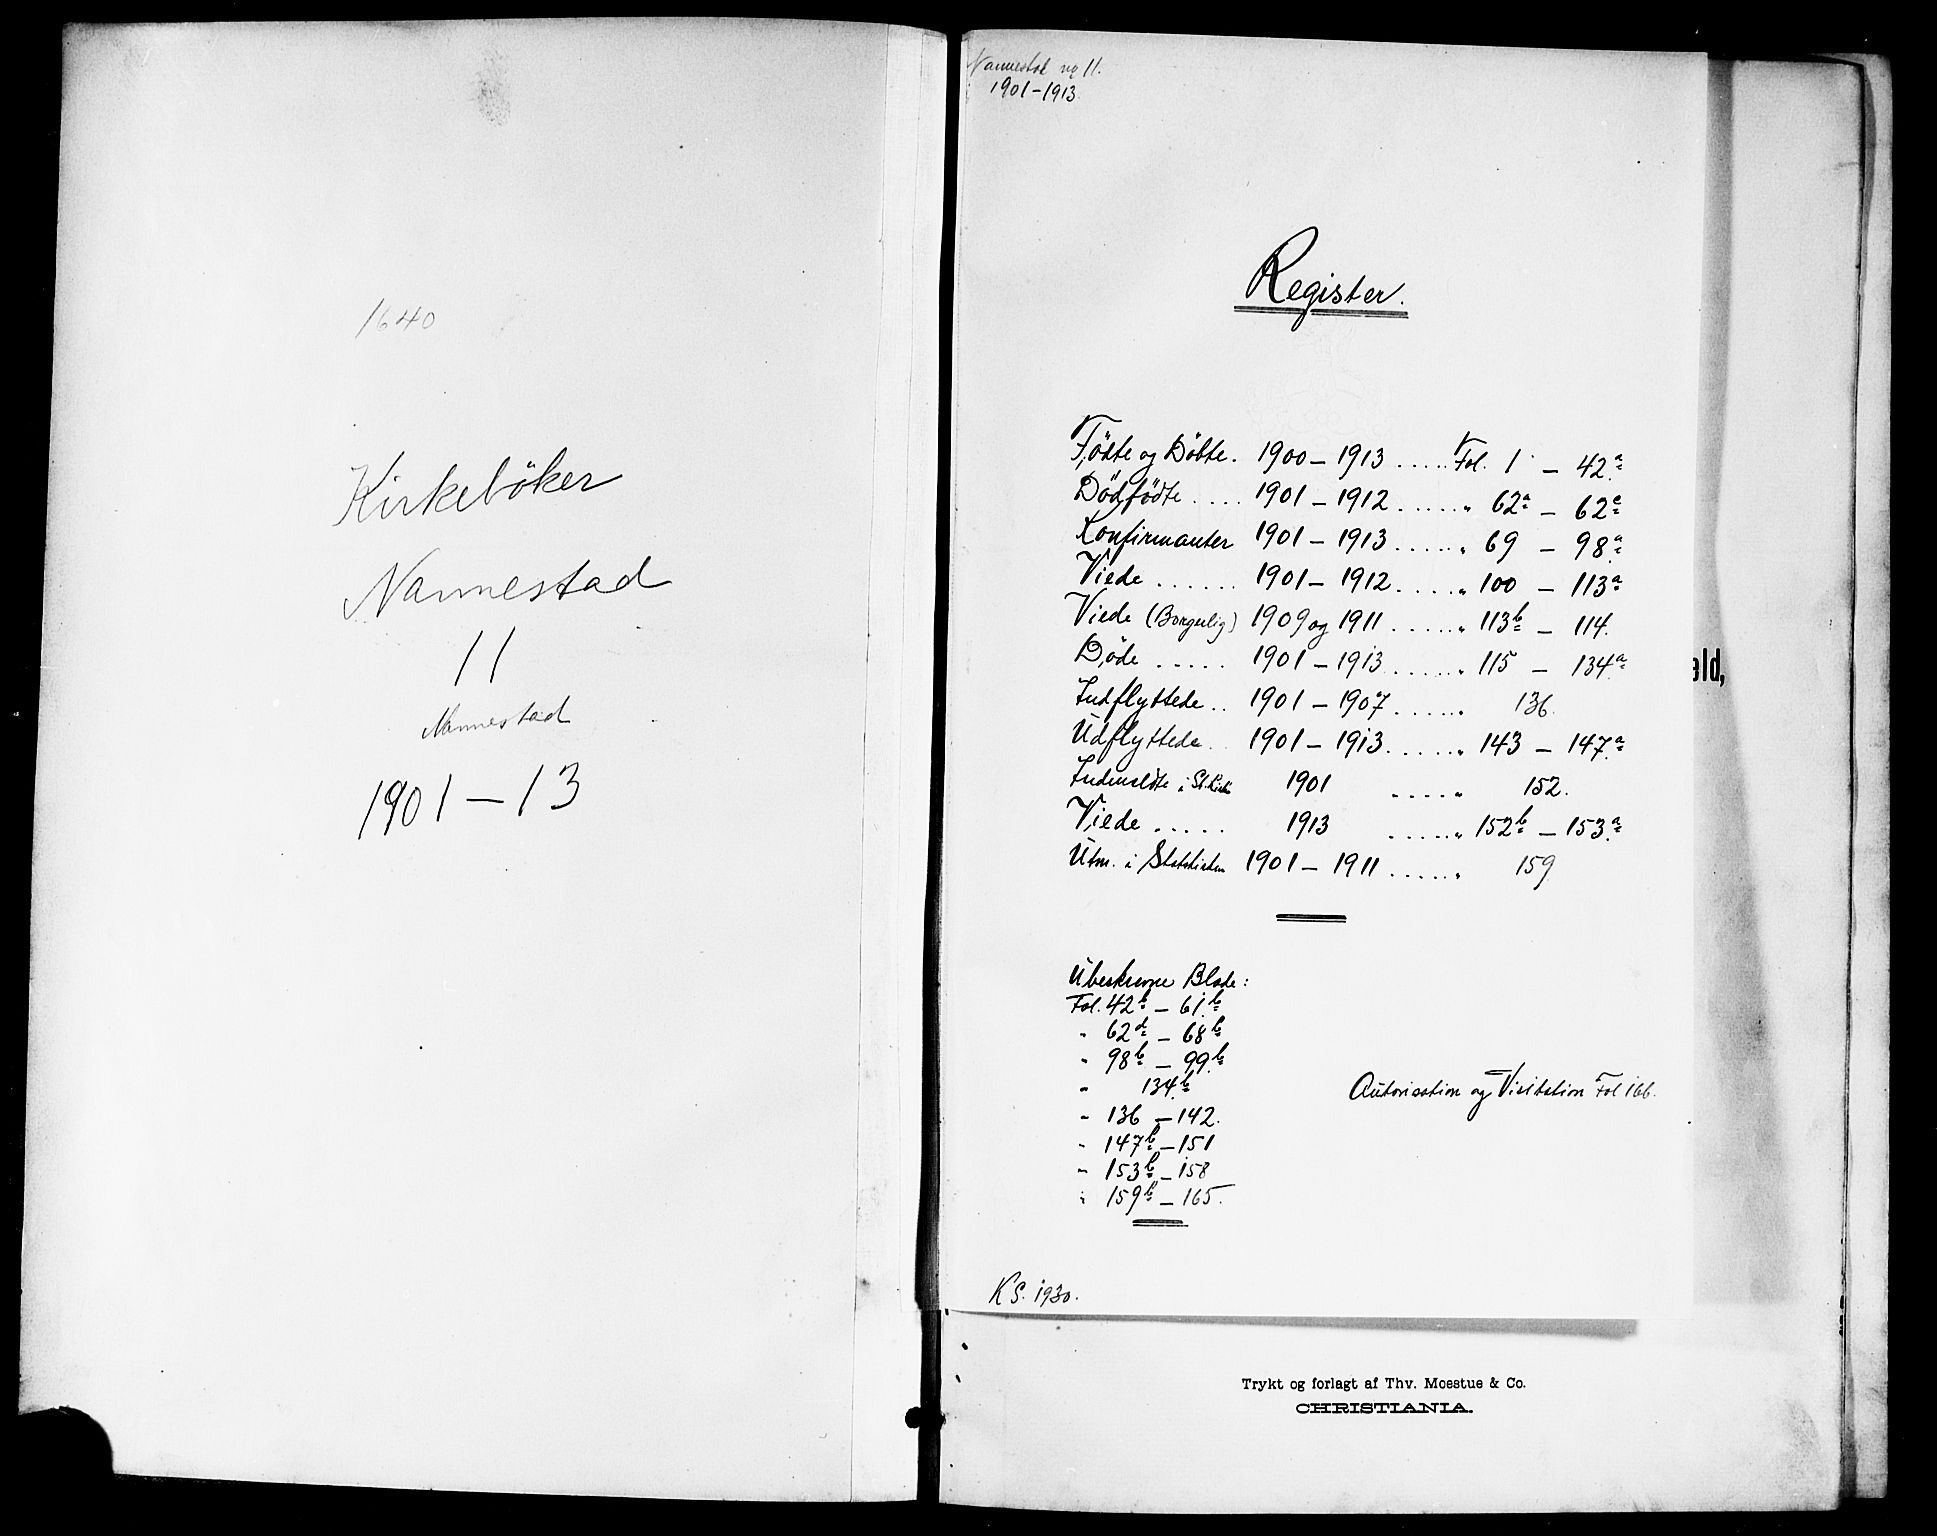 1640
Kirkeböker
Nannestad
11
Nannestad
1901 – 13
Nannestad no 11.
1901-1913.
Register.
Födte og Döbte. 1900 – 1913 ..... Fol. 1 – 42a
Dödfödte .... 1901 – 1912 ..... " 62a – 62c
Konfirmanter 1901 – 1913 ..... " 69 – 98a
Viede ...... 1901 – 1912 ..... " 100 – 113a
Viede (Borgerlig) 1909 og 1911 ..... " 113b – 114.
Döde ..... 1901 – 1913 ..... " 115 – 134a
Indflyttede .. 1901 – 1907 ..... " 136.
Udflyttede .. 1901 – 1913 ..... " 143 – 147a
Indmeldte i St.kirk 1901 .... " 152.
Viede ..... 1913 ..... " 152b – 153a
Utm. i Statskirken 1901 – 1911 ..... " 159
Ubeskrevne Blade:
Fol. 42b – 61b
" 62d – 68b
" 98b – 99b
" 134b
" 136 – 142.
" 147b – 151
" 153b – 158
" 159b – 165.
Autorisation og Visitation Fol 166.
K S. 1930.
æld,
Trykt og forlagt af Thv. Moestue & Co.
CHRISTIANIA.